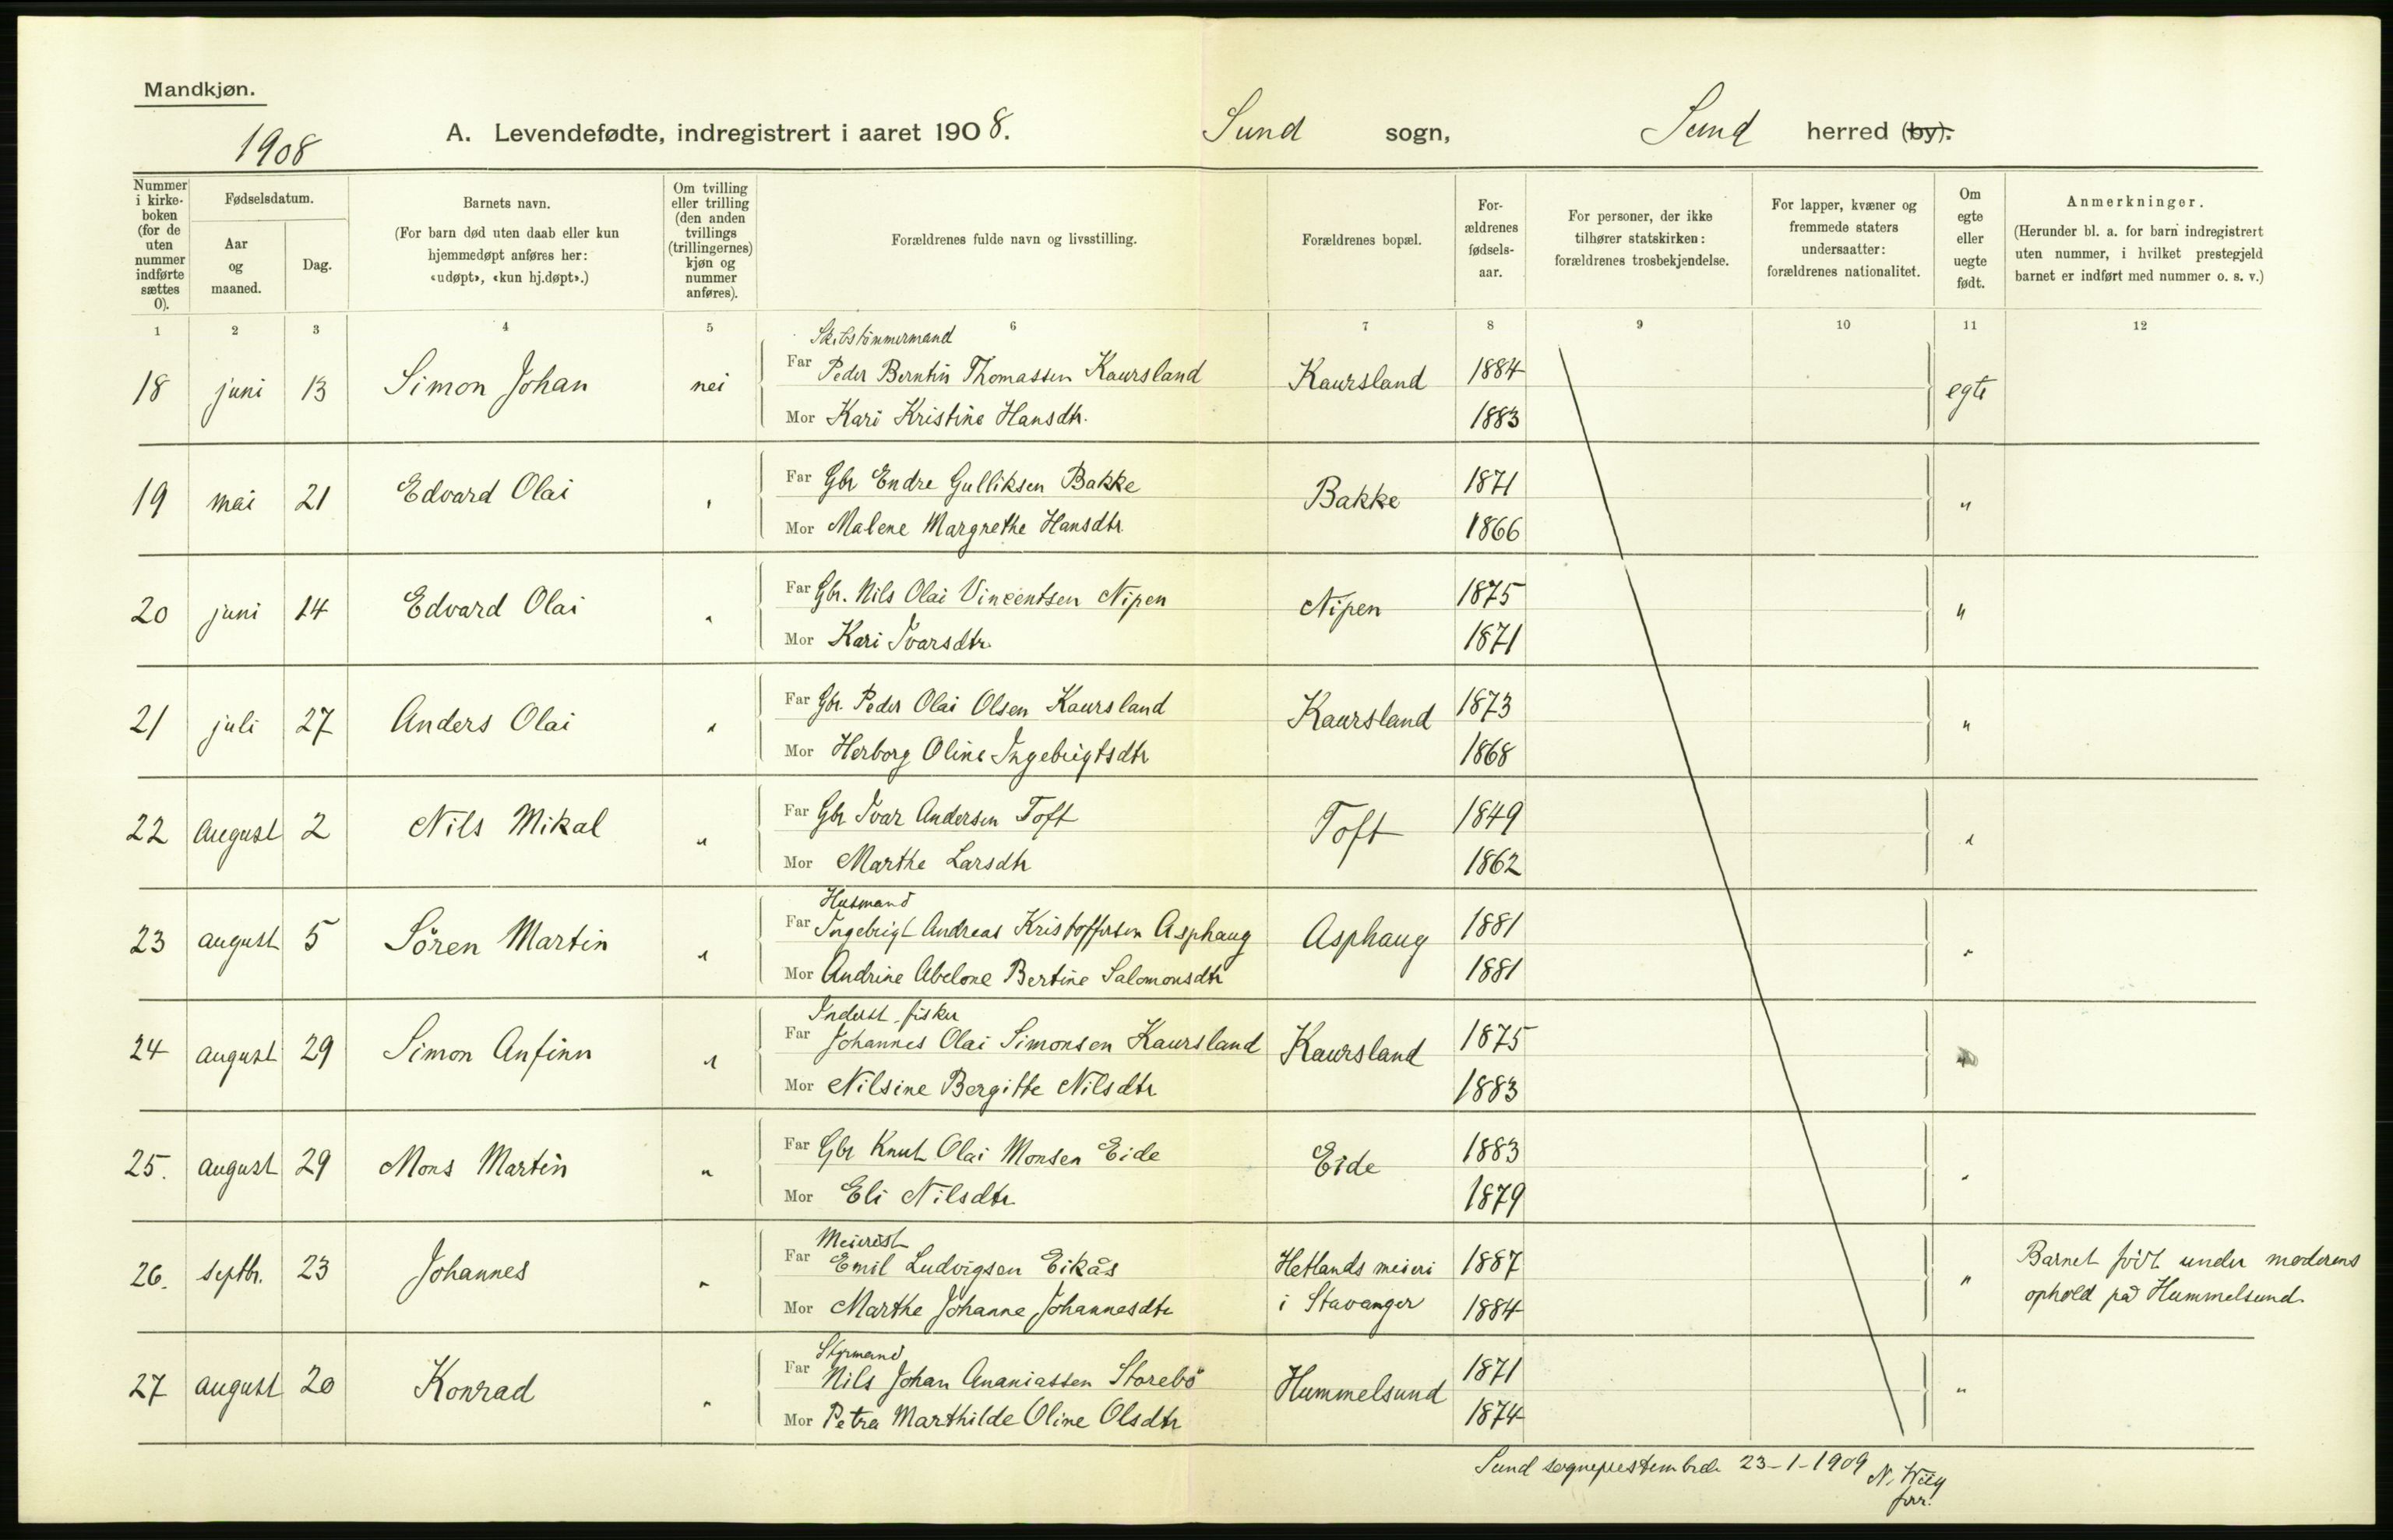 Mandkjøn.
1908
A. Levendefødte, indregistrert i aaret 1908. Sund sogn, Sund herred (by).
Nummer i kirkeboken (for de uten nummer indførte sættes 0).
Fødselsdatum.
Aar og maaned.
Dag.
Barnets navn.
(For barn død uten daab eller kun hjemmedøpt anføres her: «udøpt», «kun hj.døpt».)
Om tvilling eller trilling (den anden tvillings (trillingernes) kjøn og nummer anføres).
Forældrenes fulde navn og livsstilling.
Forældrenes bopæl.
For-ældrenes fødsels-aar.
For personer, der ikke tilhører statskirken: forældrenes trosbekjendelse.
For lapper, kvæner og fremmede staters undersaatter: forældrenes nationalitet.
Om egte eller uegte født.
Anmerkninger.
(Herunder bl. a. for barn indregistrert uten nummer, i hvilket prestegjeld barnet er indført med nummer o. s. v.)
1 2 3 4 5 6 7 8 9 10 11 12
Skibstømmermand
18 juni 13 Simon Johan nei Far Peder Berntin Thomassen Kaursland Kaursland 1884 egte
Mor Kari Kristine Hansdtr. 1883
19 mai 21 Edvard Olai " Far Gbr Endre Gulliksen Bakke Bakke 1871 "
Mor Malene Margrethe Hansdtr 1866
20 juni 14 Edvard Olai " Far Gbr. Nils Olai Vincentsen Nipen Nipen 1875 "
Mor Kari Ivarsdtr. 1871
21 juli 27 Anders Olai " Far Gbr. Peder Olai Olsen Kaursland Kaursland 1873 "
Mor Herborg Oline Ingebrigtsdtr 1868
22 August 2 Nils Mikal " Far Gbr Ivar Andersen Toft Toft 1849 "
Mor Marthe Larsdtr 1862
Husmand
23 august 5 Sören Martin " Far Ingebrigt Andreas Kristoffersen Asphaug Asphaug 1881 "
Mor Andrine Abelone Bertine Salomonsdtr 1881
Inderst, fisker
24 august 29 Simon Anfinn " Far Johannes Olai Simonsen Kaursland Kaursland 1875 "
Mor Nilsine Bergitte Nilsdtr 1883
25. august 29 Mons Martin " Far Gbr Knut Olai Monsen Eide Eide 1883 "
Mor Eli Nilsdtr 1879
Meierist
26. septbr. 23 Johannes " Far Emil Ludvigsen Eikås Hetlands meieri 1887 " Barnet födt under moderens
Mor Marthe Johanne Johannesdtr i Stavanger 1884 ophold på Hummelsund.
Styrmand
27 august 20 Konrad " Far Nils Johan Ananiassen Storebö Hummelsund 1871 "
Mor Petra Marthilde Oline Olsdtr 1874
Sund sogneprestembede 23-1-1909